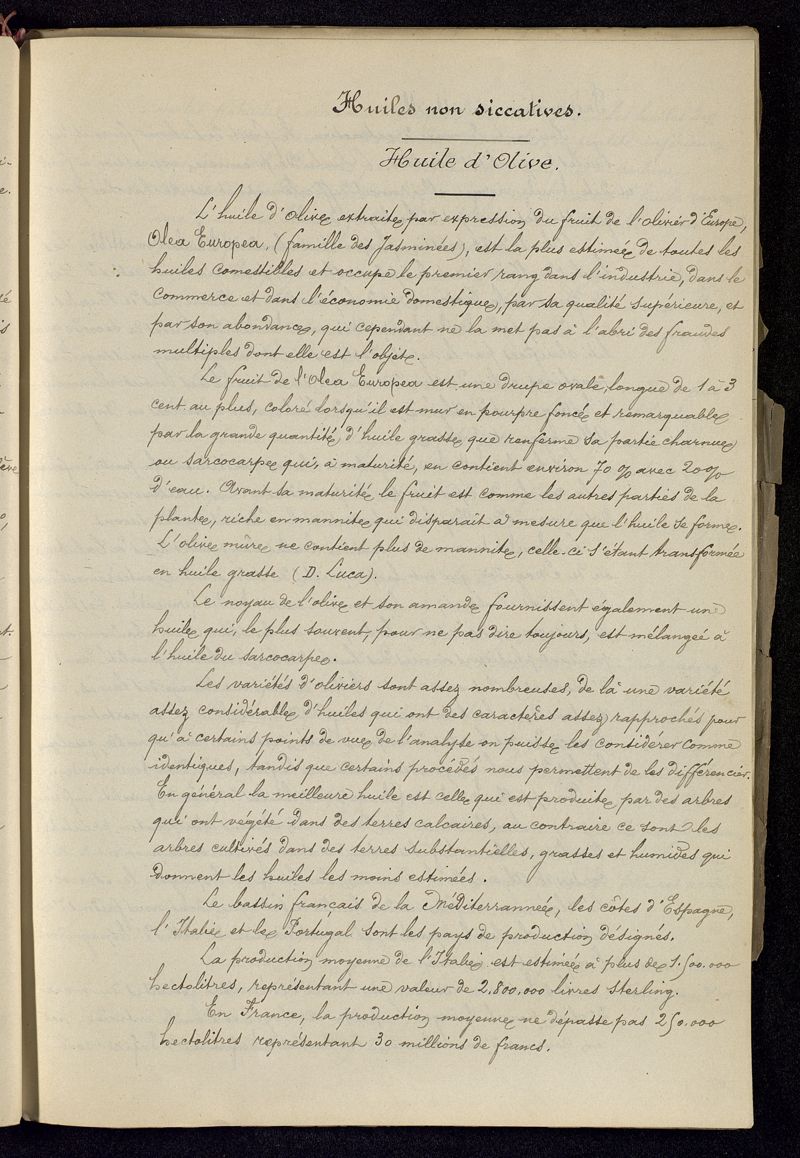 Huiles non siccatives.
Huile d'Olive.
L'huile d'Olive extraite par expression du fruit de l'olivier d'Europe,
Olea Europea, (famille des Jasminées), est la plus estimée de toutes les
huiles comestilles et occupe le premier rang dans l'industrie, dans le
Commerce et dans l'économie domestique, par sa qualité supérieure, et
par son abondance, qui cependant ne la met pas à l'abri des fraudes
multiples dont elle est l'objet.
Le fruit de l'Olea Europea est une drupe ovale, longue de 1 à 3
cent au plus, coloré lorsqu'il est mur en pourpre foncé et remarquable
par la grande quantité d'huile grasse que renferme sa partie charnue
ou sarcocarpe qui, à maturité, en contient environ 70 % avec 20 %
d'eau. Avant sa maturité le fruit est comme les autres parties de la
plante, riche en mannite qui disparaît à mesure que l'huile se forme.
L'olive mûre ne contient plus de mannite, celle-ci s'étant transformée
en huile grasse (D. Luca).
Le noyau de l'olive et son amande fournissent également une
huile qui, le plus souvent, pour ne pas dire toujours, est mélangée à
l'huile du sarcocarpe.
Les variétés d'oliviers sont assez nombreuses, de là une variété
assez considérable d'huiles qui ont des caractères assez rapprochés pour
qu'à certains points de vue de l'analyse on puisse les considérer comme
identiques, tandis que certains procédés nous permettent de les différencier.
En général la meilleure huile est celle qui est produite par des arbres
qui ont végété dans des terres calcaires, au contraire ce sont les
arbres cultivés dans des terres substantielles, grasses et humides qui
donnent les huiles les moins estimées.
Le bassin français de la Méditerrannée, les côtes d'Espagne,
l'Italie et le Portugal sont les pays de production désignés.
La production moyenne de l'Italie est estimée à plus de 1.500.000
hectolitres, représentant une valeur de 2.800.000 livres Sterling.
En France, la production moyenne ne dépasse pas 250.000
hectolitres représentant 30 millions de francs.